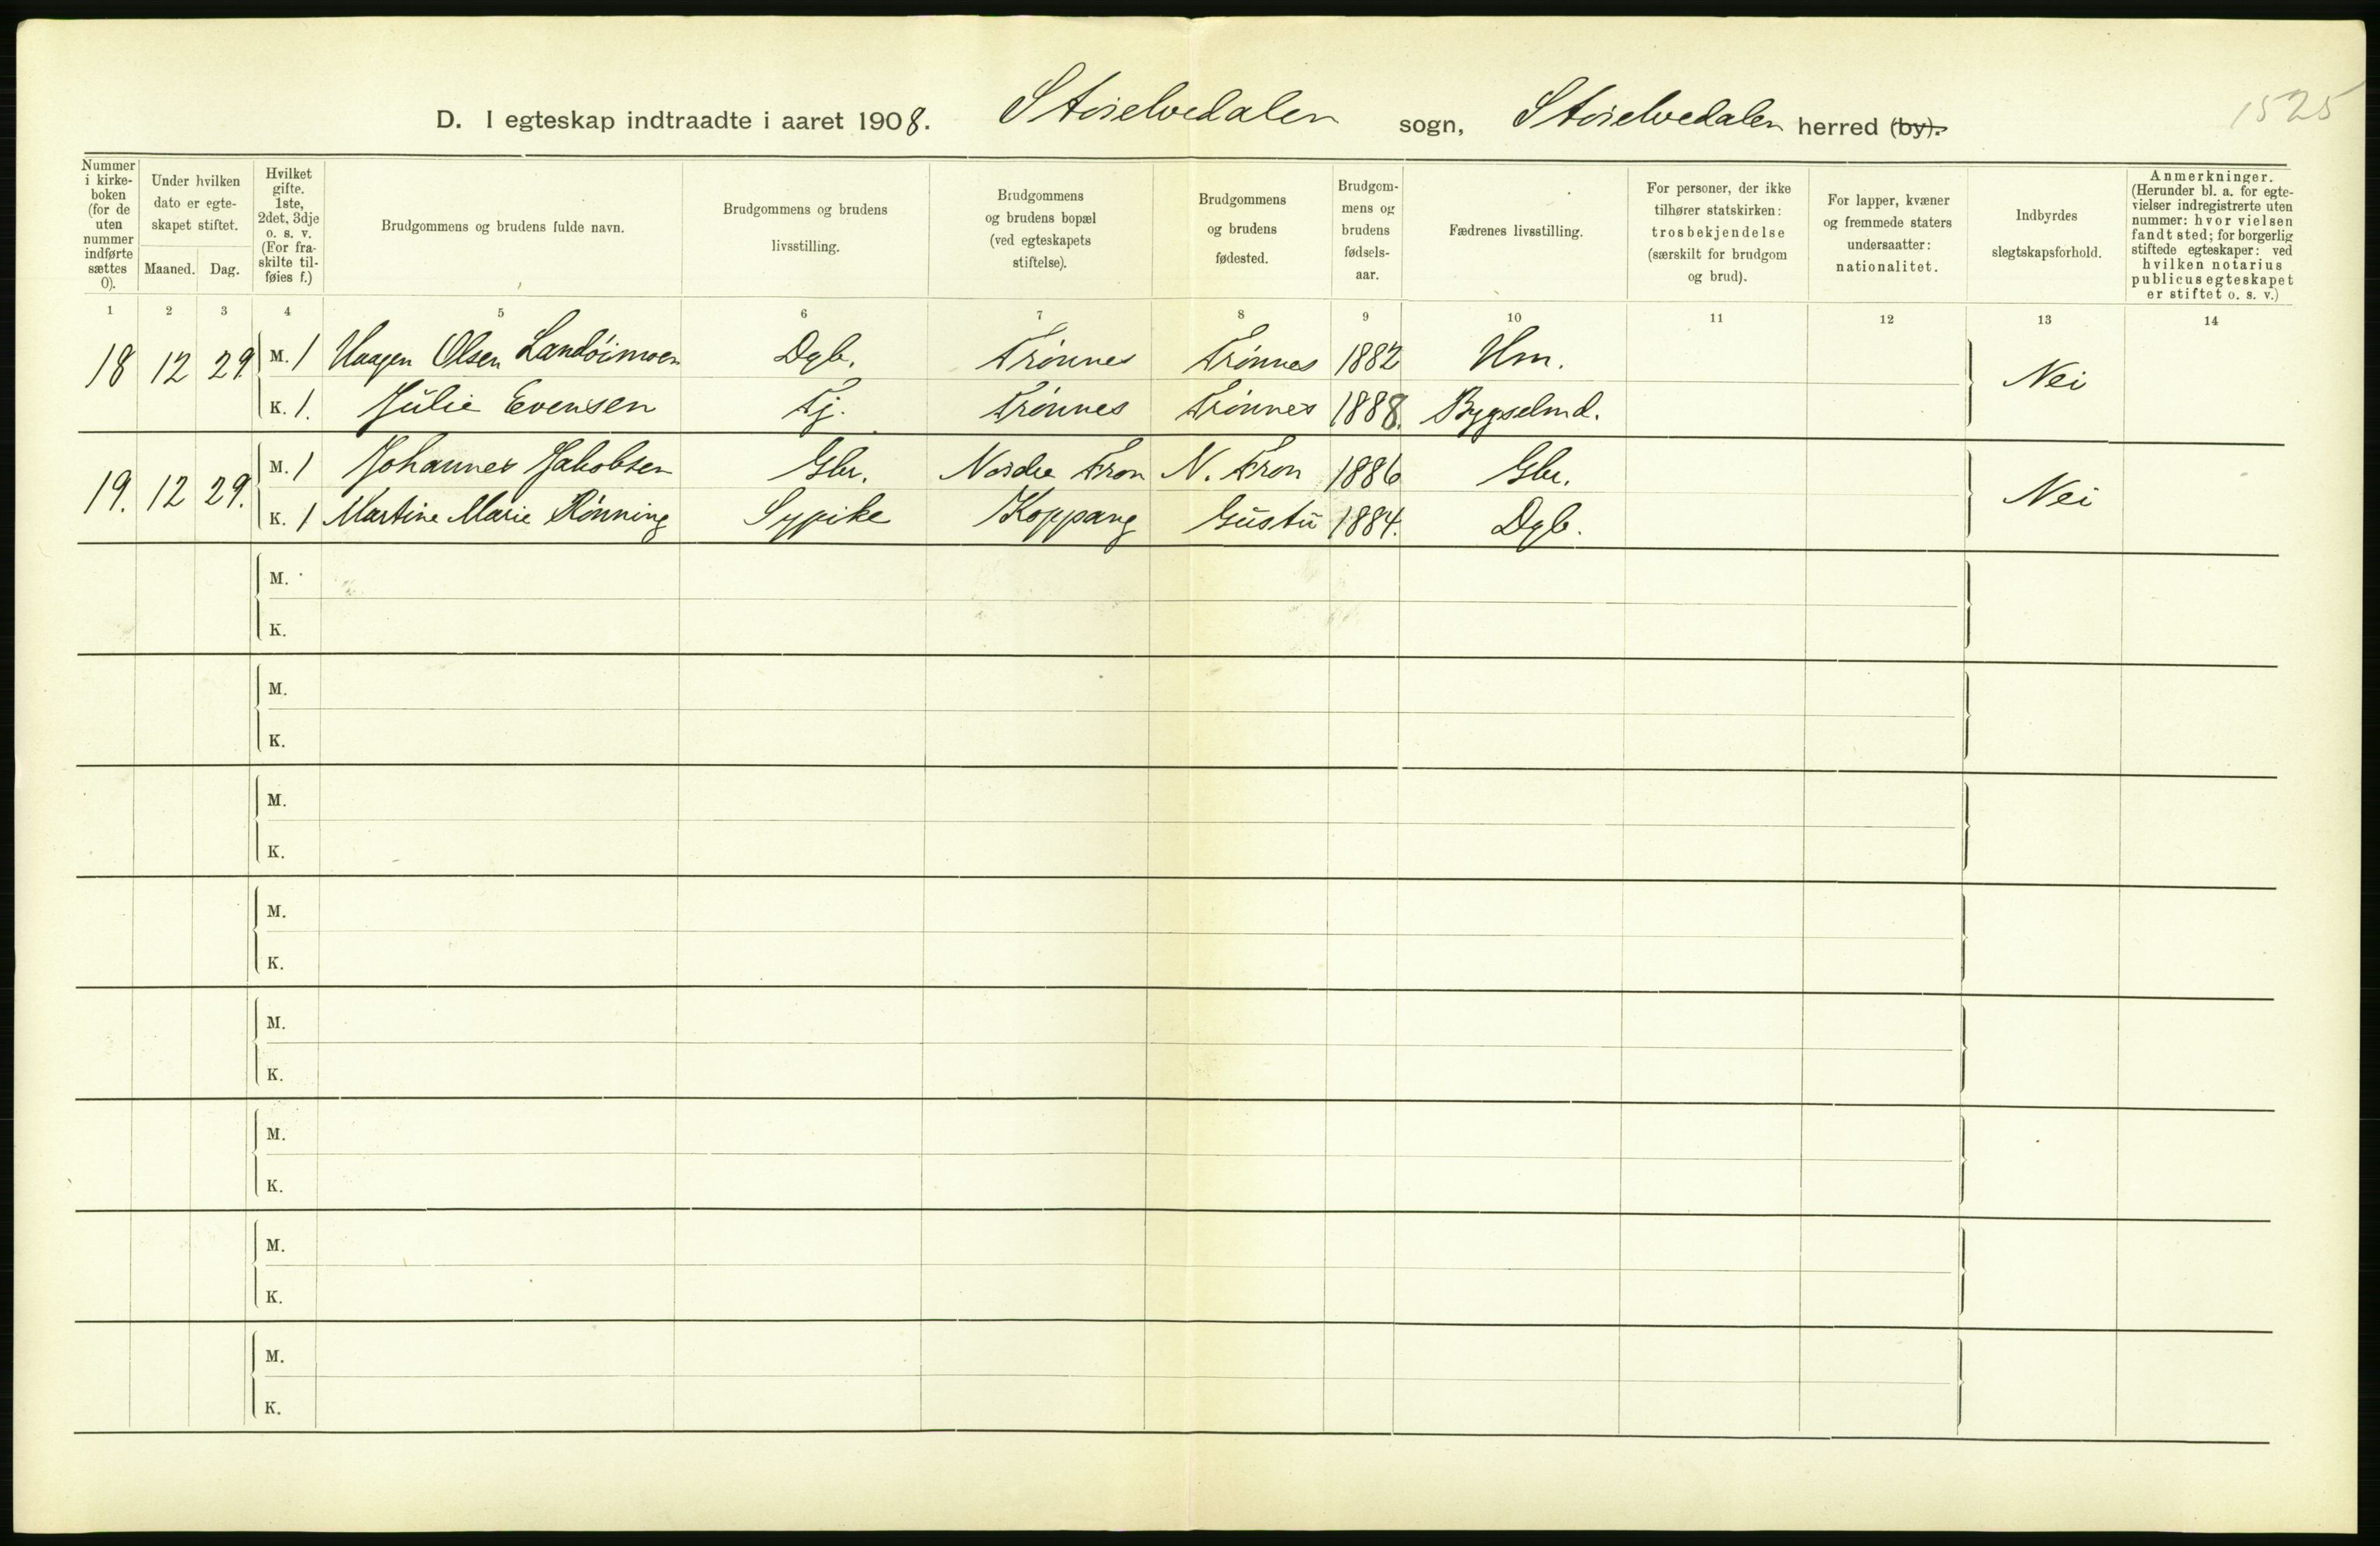 1525
D. I egteskap indtraadte i aaret 1908. Storelvedalen sogn, Storelvedalen herred (by).
Nummer i kirke-boken (for de uten nummer indførte sættes 0).
Under hvilken dato er egte-skapet stiftet.
Maaned. Dag.
Hvilket gifte. 1ste, 2det, 3dje o. s. v. (For fra-skilte til-føies f.)
Brudgommens og brudens fulde navn.
Brudgommens og brudens livsstilling.
Brudgommens og brudens bopæl (ved egteskapets stiftelse).
Brudgommens og brudens fødested.
Brudgom-mens og brudens fødsels-aar.
Fædrenes livsstilling.
For personer, der ikke tilhører statskirken: trosbekjendelse (særskilt for brudgom og brud).
For lapper, kvæner og fremmede staters undersaatter: nationalitet.
Indbyrdes slegtskapsforhold.
Anmerkninger. (Herunder bl. a. for egte-vielser indregistrerte uten nummer: hvor vielsen fandt sted; for borgerlig stiftede egteskaper: ved hvilken notarius publicus egteskapet er stiftet o. s. v.)
1 2 3 4 5 6 7 8 9 10 11 12 13 14
18 12 29. M. 1 Haagen Olsen Landöimoen Dgb. Trønnes Trønnes 1882 Hm. Nei
K. 1. Julie Evensen Tj. Trønnes Trønnes 1888. Bygselmd.
19. 12 29. M. 1 Johannes Jakobsen Gbr. Nordre Fron N. Fron 1886 Gbr. Nei
K. 1 Martine Marie Rønning Sypike Koppang 1884. Dgb.
M.
K.
M.
K.
M.
K.
M.
K.
M.
K.
M.
K.
M.
K.
M.
K.